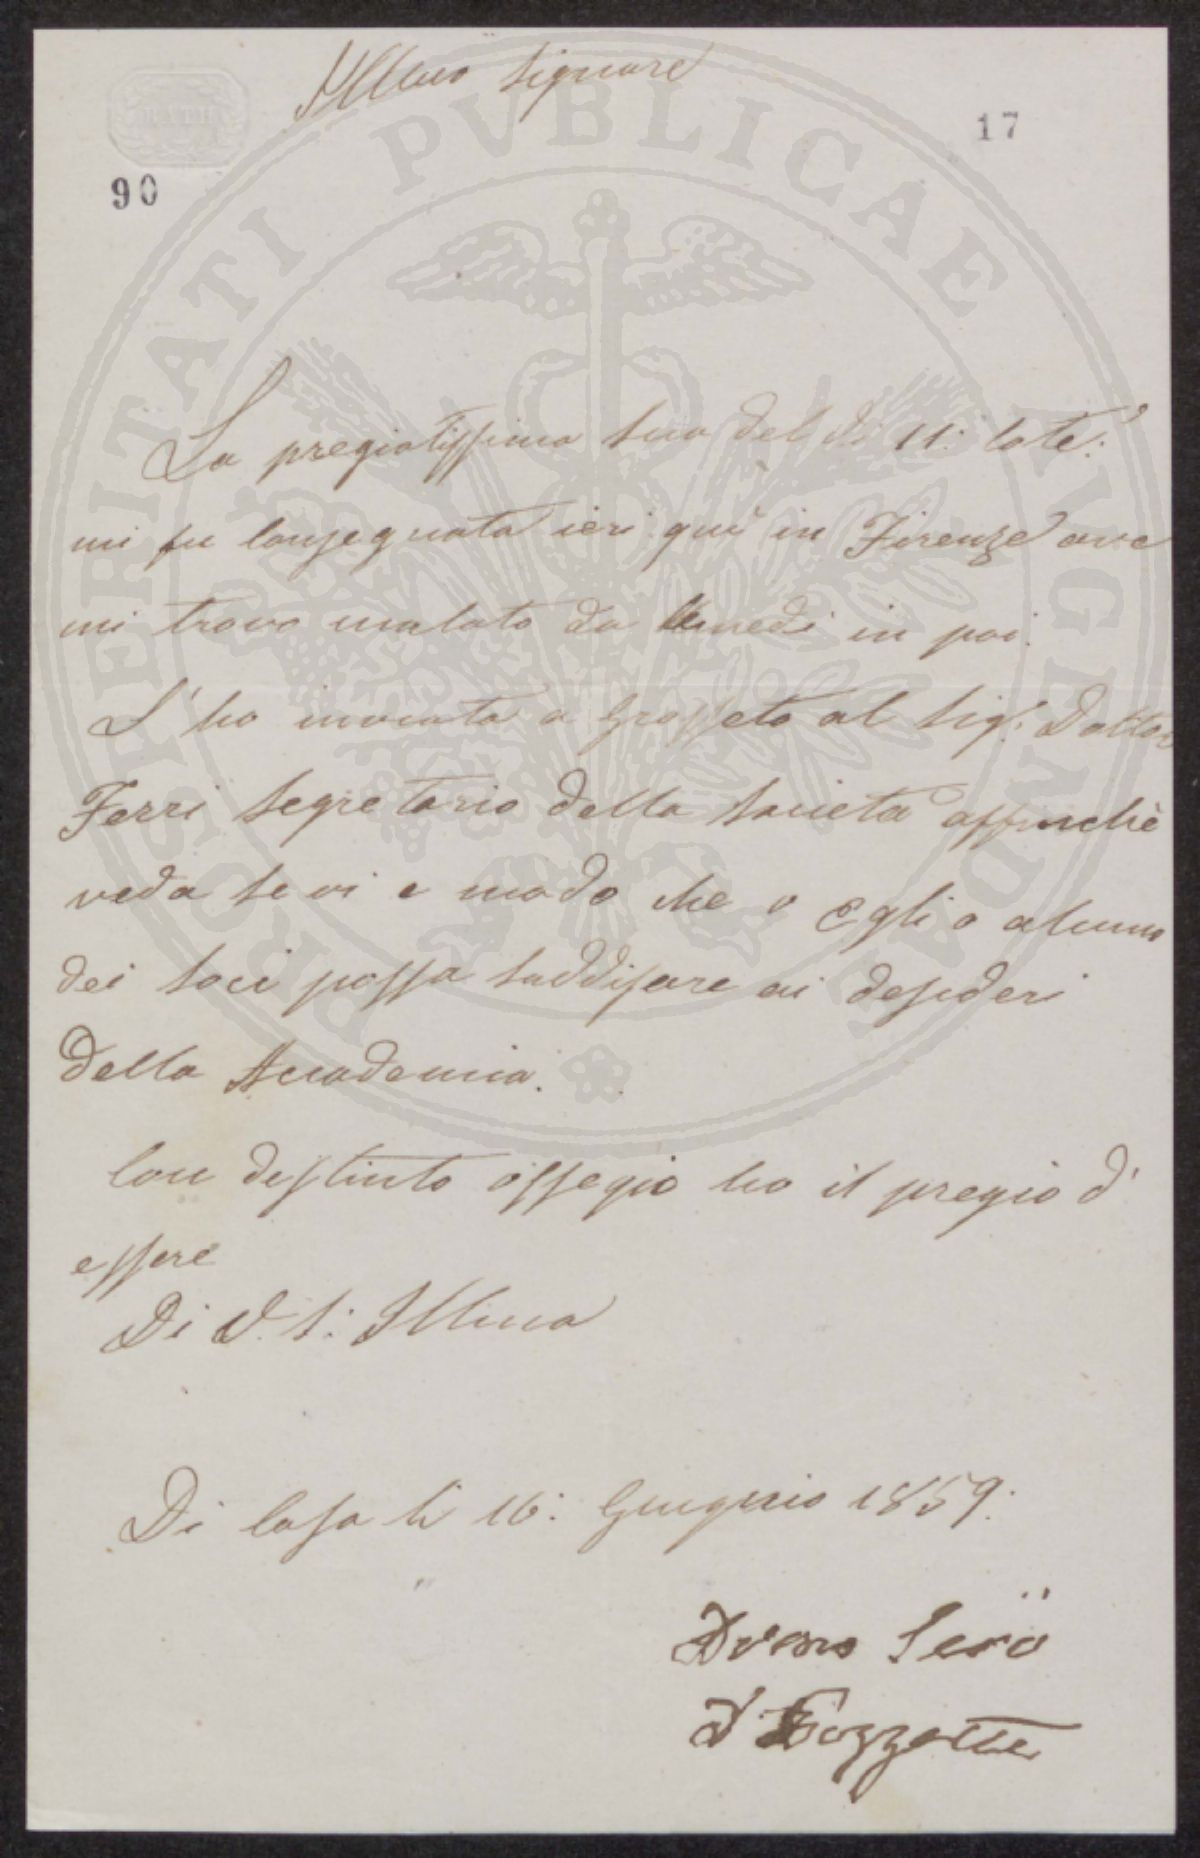 Illmo Signore
BATH
17
90
PROSPERITATI PVBLICAE AVGENDAE
La pregiatissima Sua del dì 11: Cote:
mi fu Consegnata ieri quì in Firenze ove
mi trovo malato da Lunedì in poi.
L'ho inviata a Grosseto al Sig.r Dottor
Ferri Segretario della Società affinchè
veda se vi e modo che o Egli o alcuno
dei Soci possa Saddisfare ai desideri
della Accademia.
Con distinto ossegio ho il pregio d'
essere
Di V. S: Illma
Di Casa li 16: Giugnio 1859:
Devmo Servo